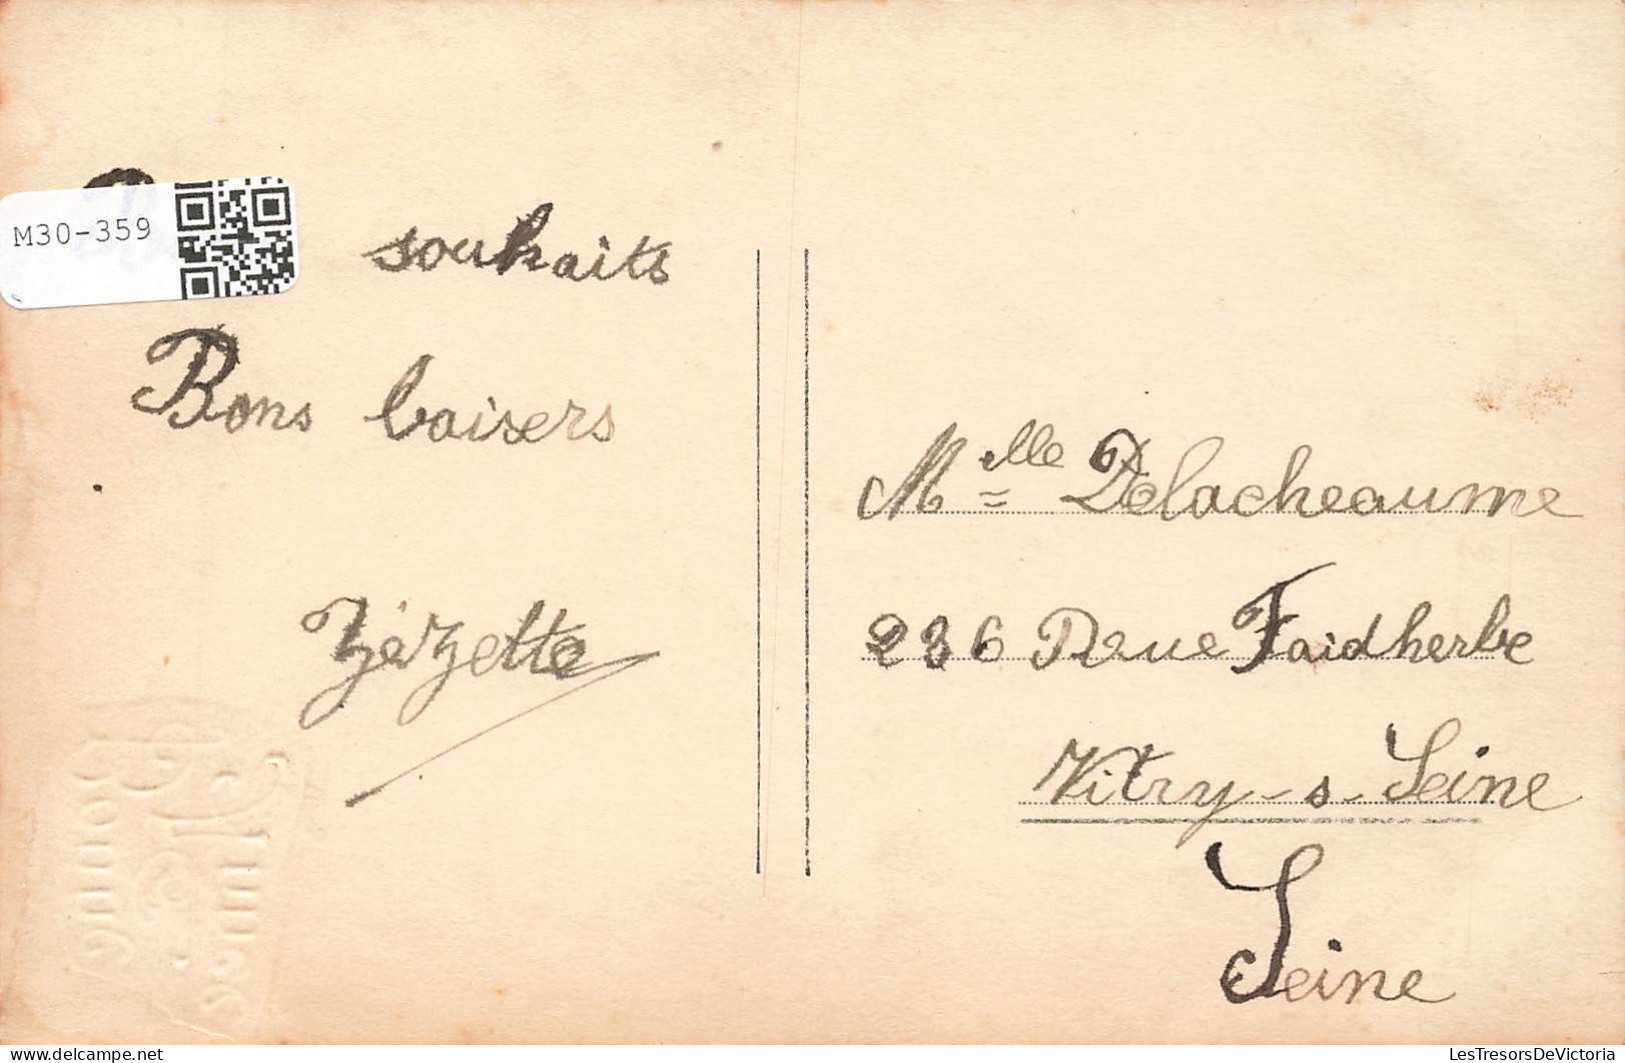 M30-359
souhaits
Bons baisers
Zézette
Melle Delacheaume
236 Rue Faidherbe
Vitry-s-Seine
Seine
Bonne
Année
delcampe.net
LesTresorsDeVictoria